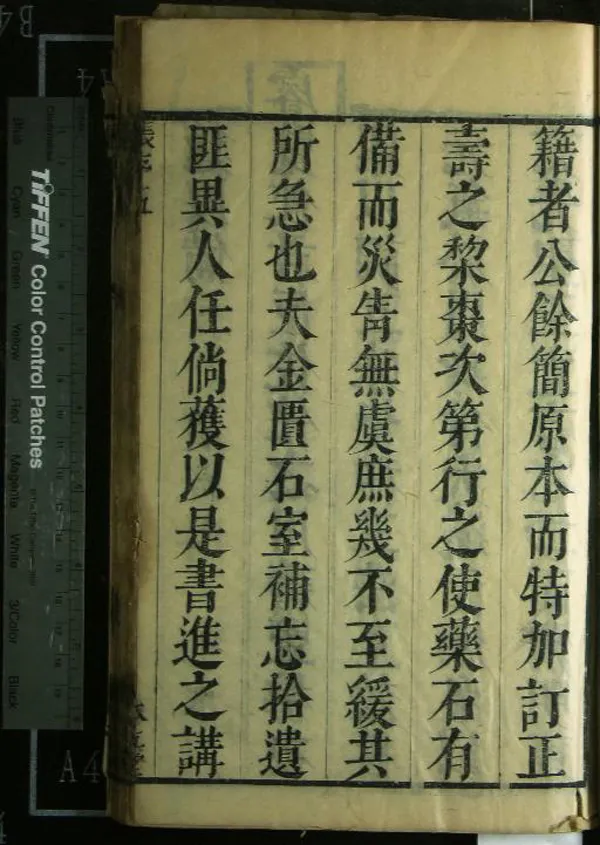 籍者公餘簡原本而特加訂正
壽之棃棗次第行之使藥石有
備而災眚無虞庶幾不至緩其
所急也夫金匱石室補忘拾遺
匪異人任倘獲以是書進之講
TIFFEN Color Control Patches
Blue Cyan Green Yellow Red Magenta White 3/Color Black